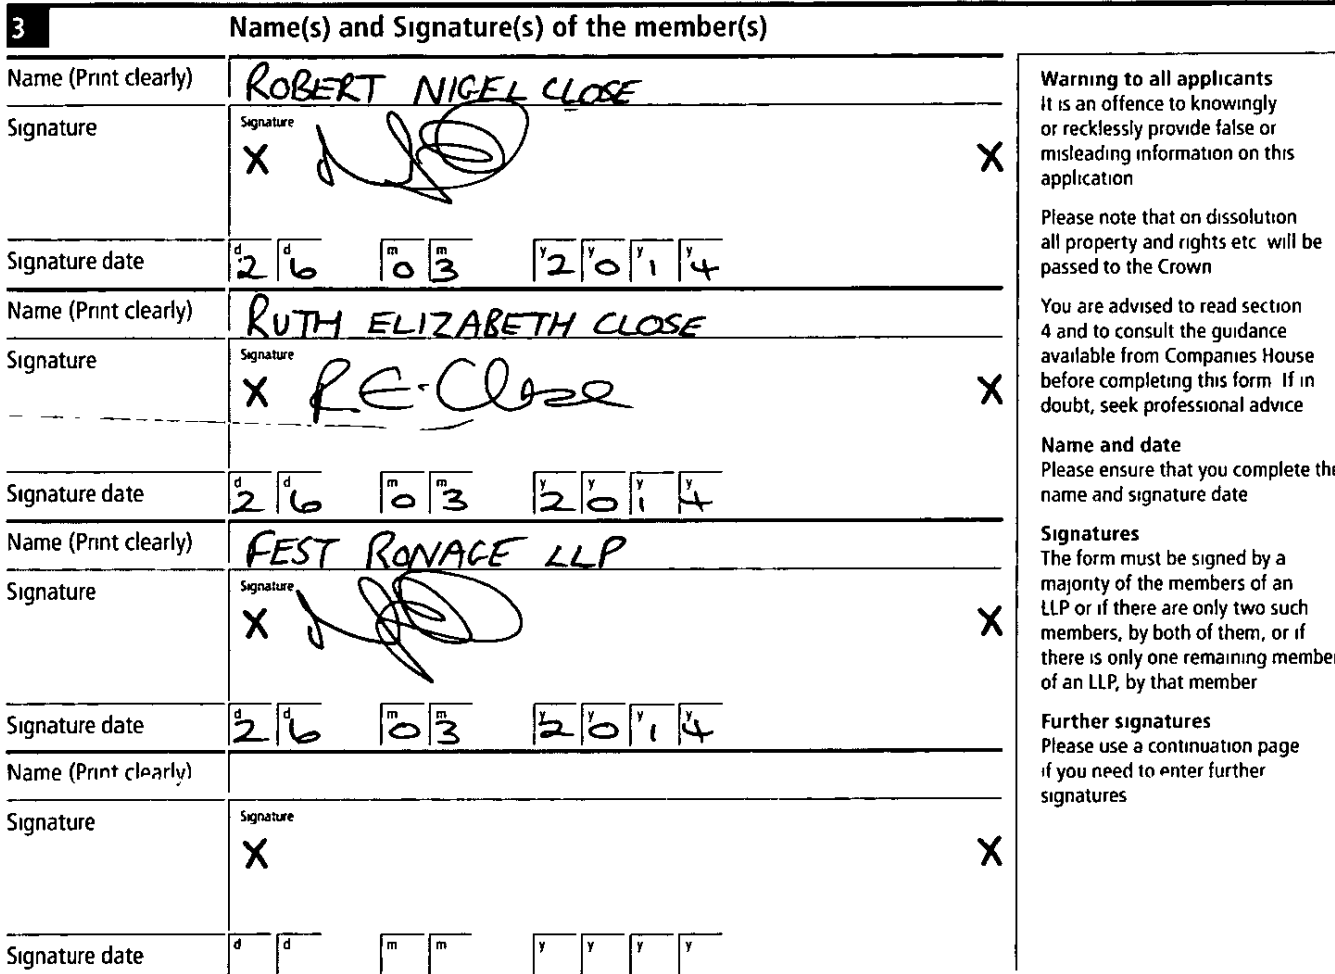 3 Name(s) and Signature(s) of the member(s)
Name (Print clearly) ROBERT NIGEL CLOSE
Signature Signature
X X
Signature date d 2 d 6 m 0 m 3 y 2 y 0 y 1 y 4
Name (Print clearly) RUTH ELIZABETH CLOSE
Signature Signature
X RE-Close X
Signature date d 2 d 6 m 0 m 3 y 2 y 0 y 1 y 4
Name (Print clearly) FEST RONAGE LLP
Signature Signature
X X
Signature date d 2 d 6 m 0 m 3 y 2 y 0 y 1 y 4
Name (Print clearly)
Signature Signature
X X
Signature date d d m m y y y y
Warning to all applicants
It is an offence to knowingly
or recklessly provide false or
misleading information on this
application
Please note that on dissolution
all property and rights etc will be
passed to the Crown
You are advised to read section
4 and to consult the guidance
available from Companies House
before completing this form If in
doubt, seek professional advice
Name and date
Please ensure that you complete the
name and signature date
Signatures
The form must be signed by a
majority of the members of an
LLP or if there are only two such
members, by both of them, or if
there is only one remaining member
of an LLP, by that member
Further signatures
Please use a continuation page
if you need to enter further
signatures